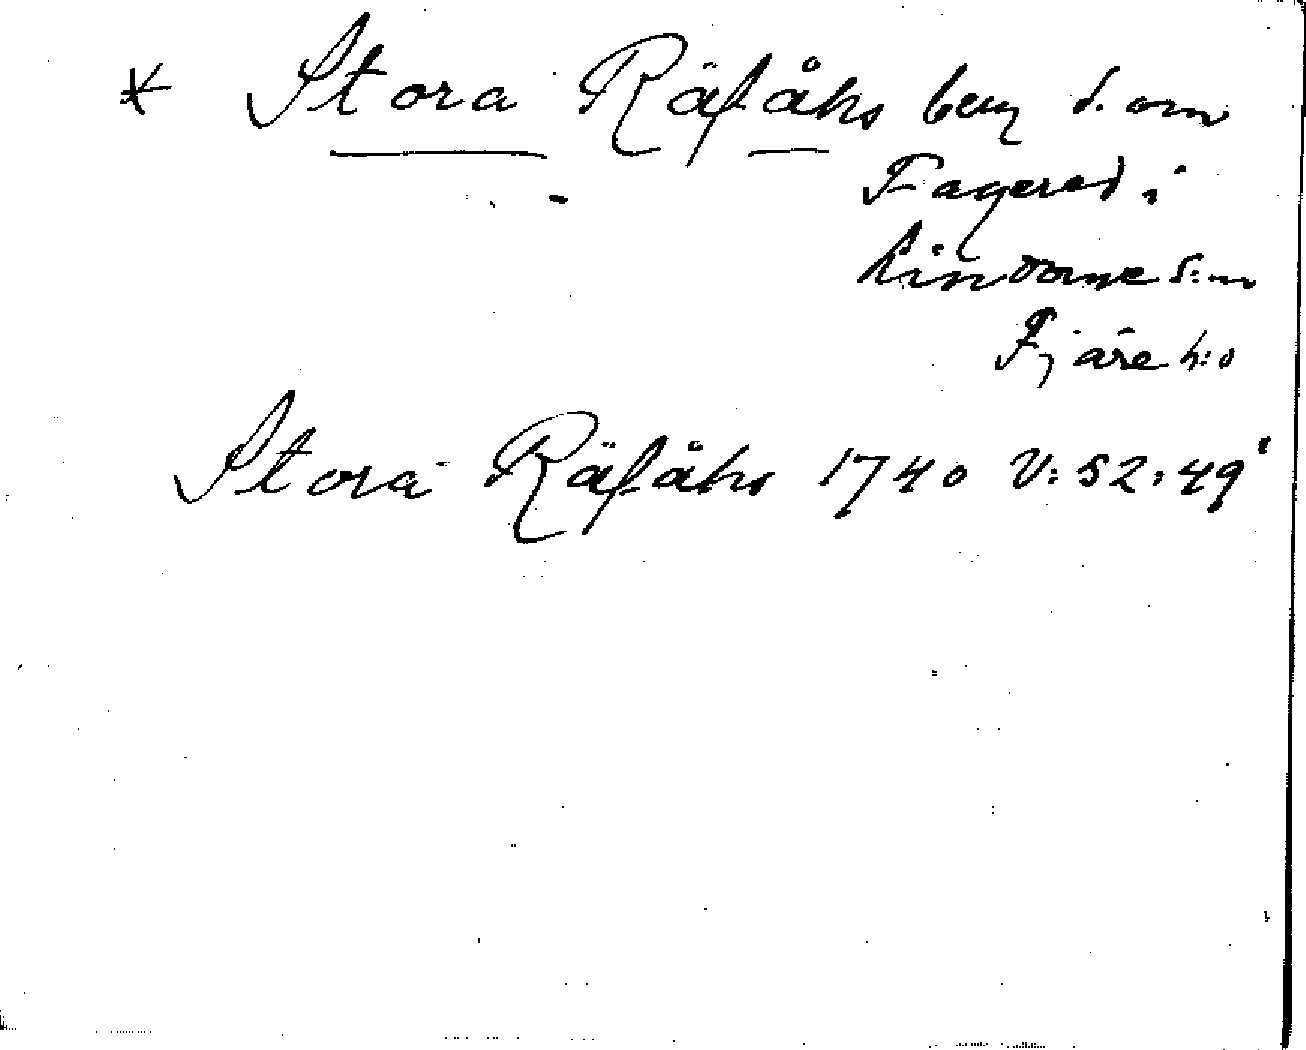 * Stora Räfåhs berg S. om
Fagered i
Lindome S:n
Fjäre h:d
Stora Räfåhs 1740 V: 52: 49'